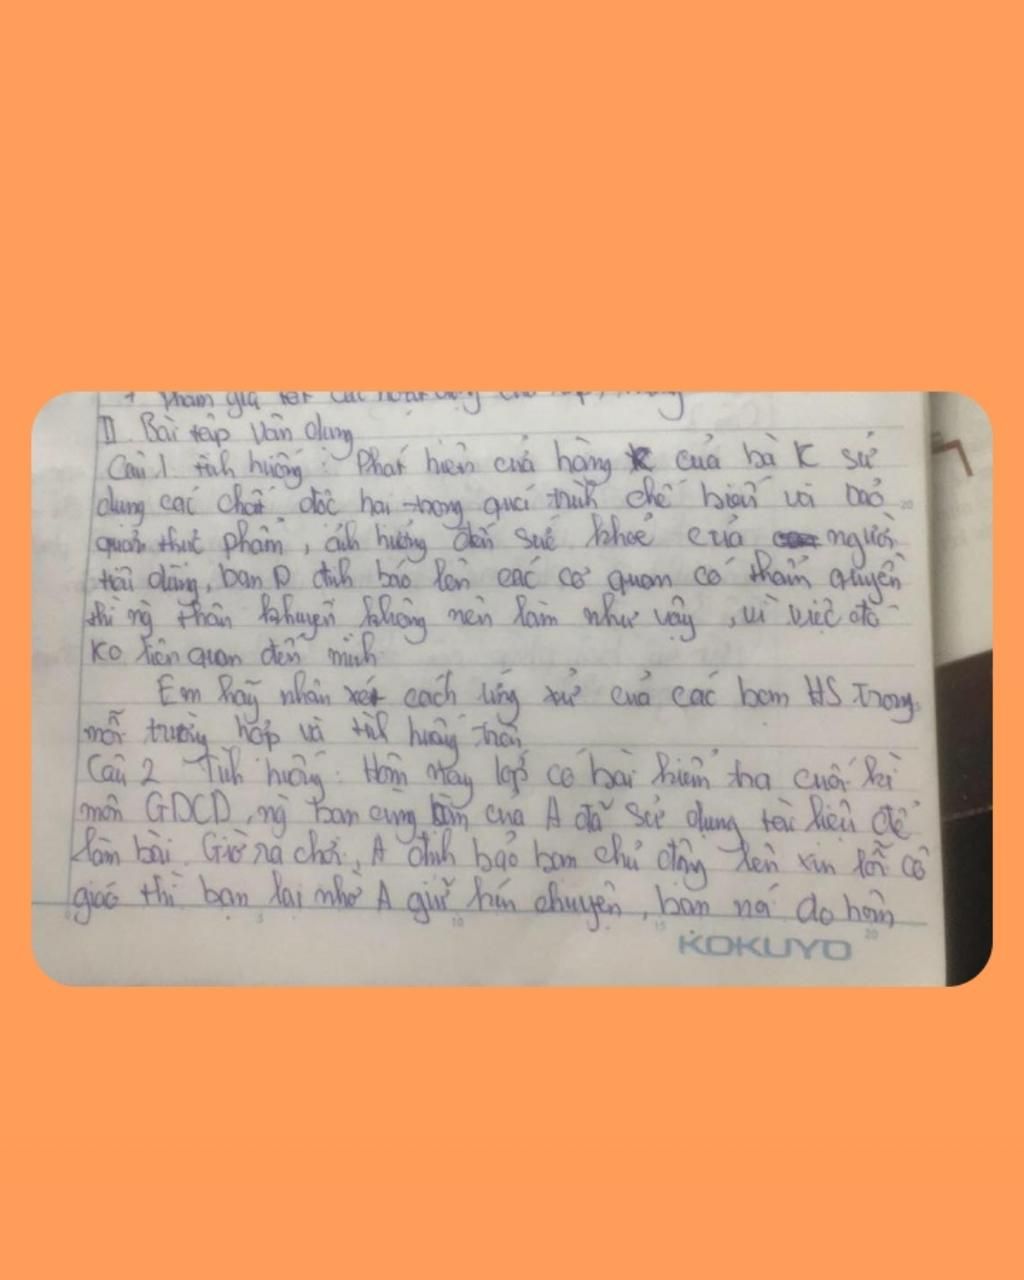 + tham gia
II. Bài tập Vận dụng
Câu 1. tình huống: Phát hiện cửa hàng của bà K sử
dụng các chất độc hại trong quá trình chế biến và bảo
quản thực phẩm, ảnh hưởng đến sức khoẻ của người
tiêu dùng, bạn P định báo lên các cơ quan có thẩm quyền
thì ng thân khuyên không nên làm như vậy, vì việc đó
ko liên quan đến mình
Em hãy nhận xét cách ứng xử của các bạn HS trong
mỗi trường hợp và tình huống trên
Câu 2 Tình huống: Hôm nay lớp có bài kiểm tra cuối kì
môn GDCD, ng bạn cùng bàn của A đã sử dụng tài liệu để
làm bài. Giờ ra chơi, A định bảo bạn chủ động lên xin lỗi cô
giáo thì bạn lại nhờ A giữ kín chuyện, bạn nói do hôm
KOKUYO